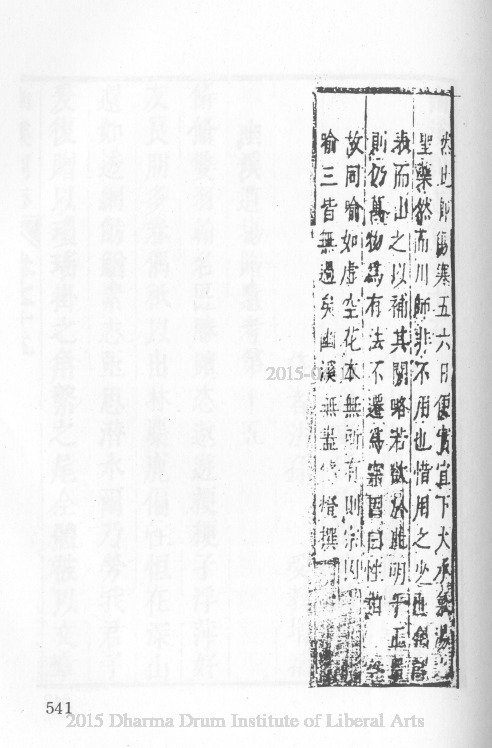 然此則傷寒五六日便實宜下大承氣湯
聖藥然而川師非不用也惜用之少
我而山之以補其闕略若欲於唯明乎正
則仍萬物為有法不遷為宗因曰性
故同喻如虛空花本無所有則宗因
喻三皆無過矣幽溪無盡傳燈撰
2015-0
541
2015 Dharma Drum Institute of Liberal Arts